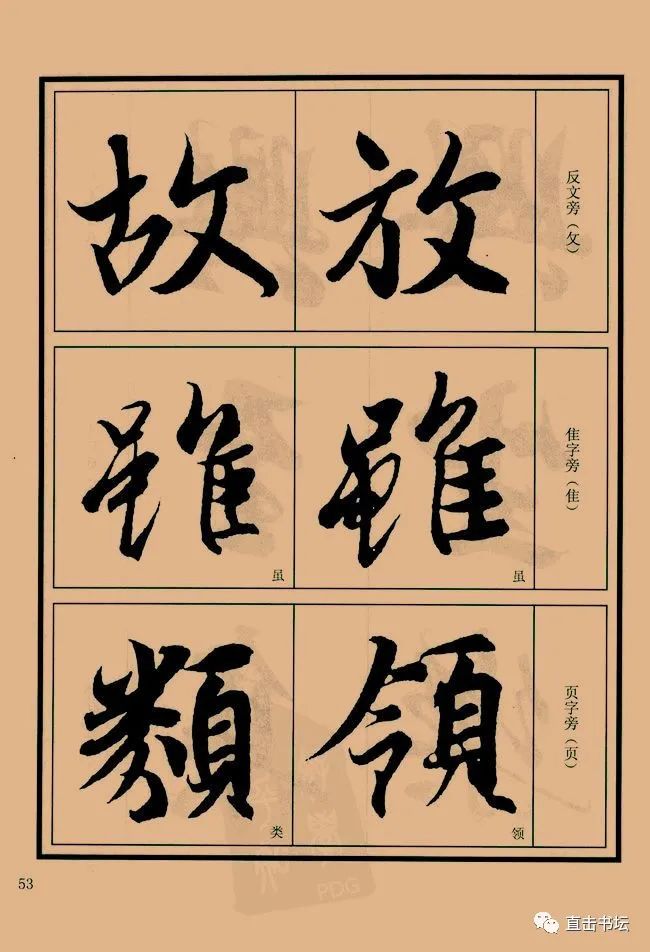 反文旁（攵）
放
故
隹字旁（隹）
雖
虽
雖
虽
页字旁（页）
領
领
類
类
53
PDG
直击书坛